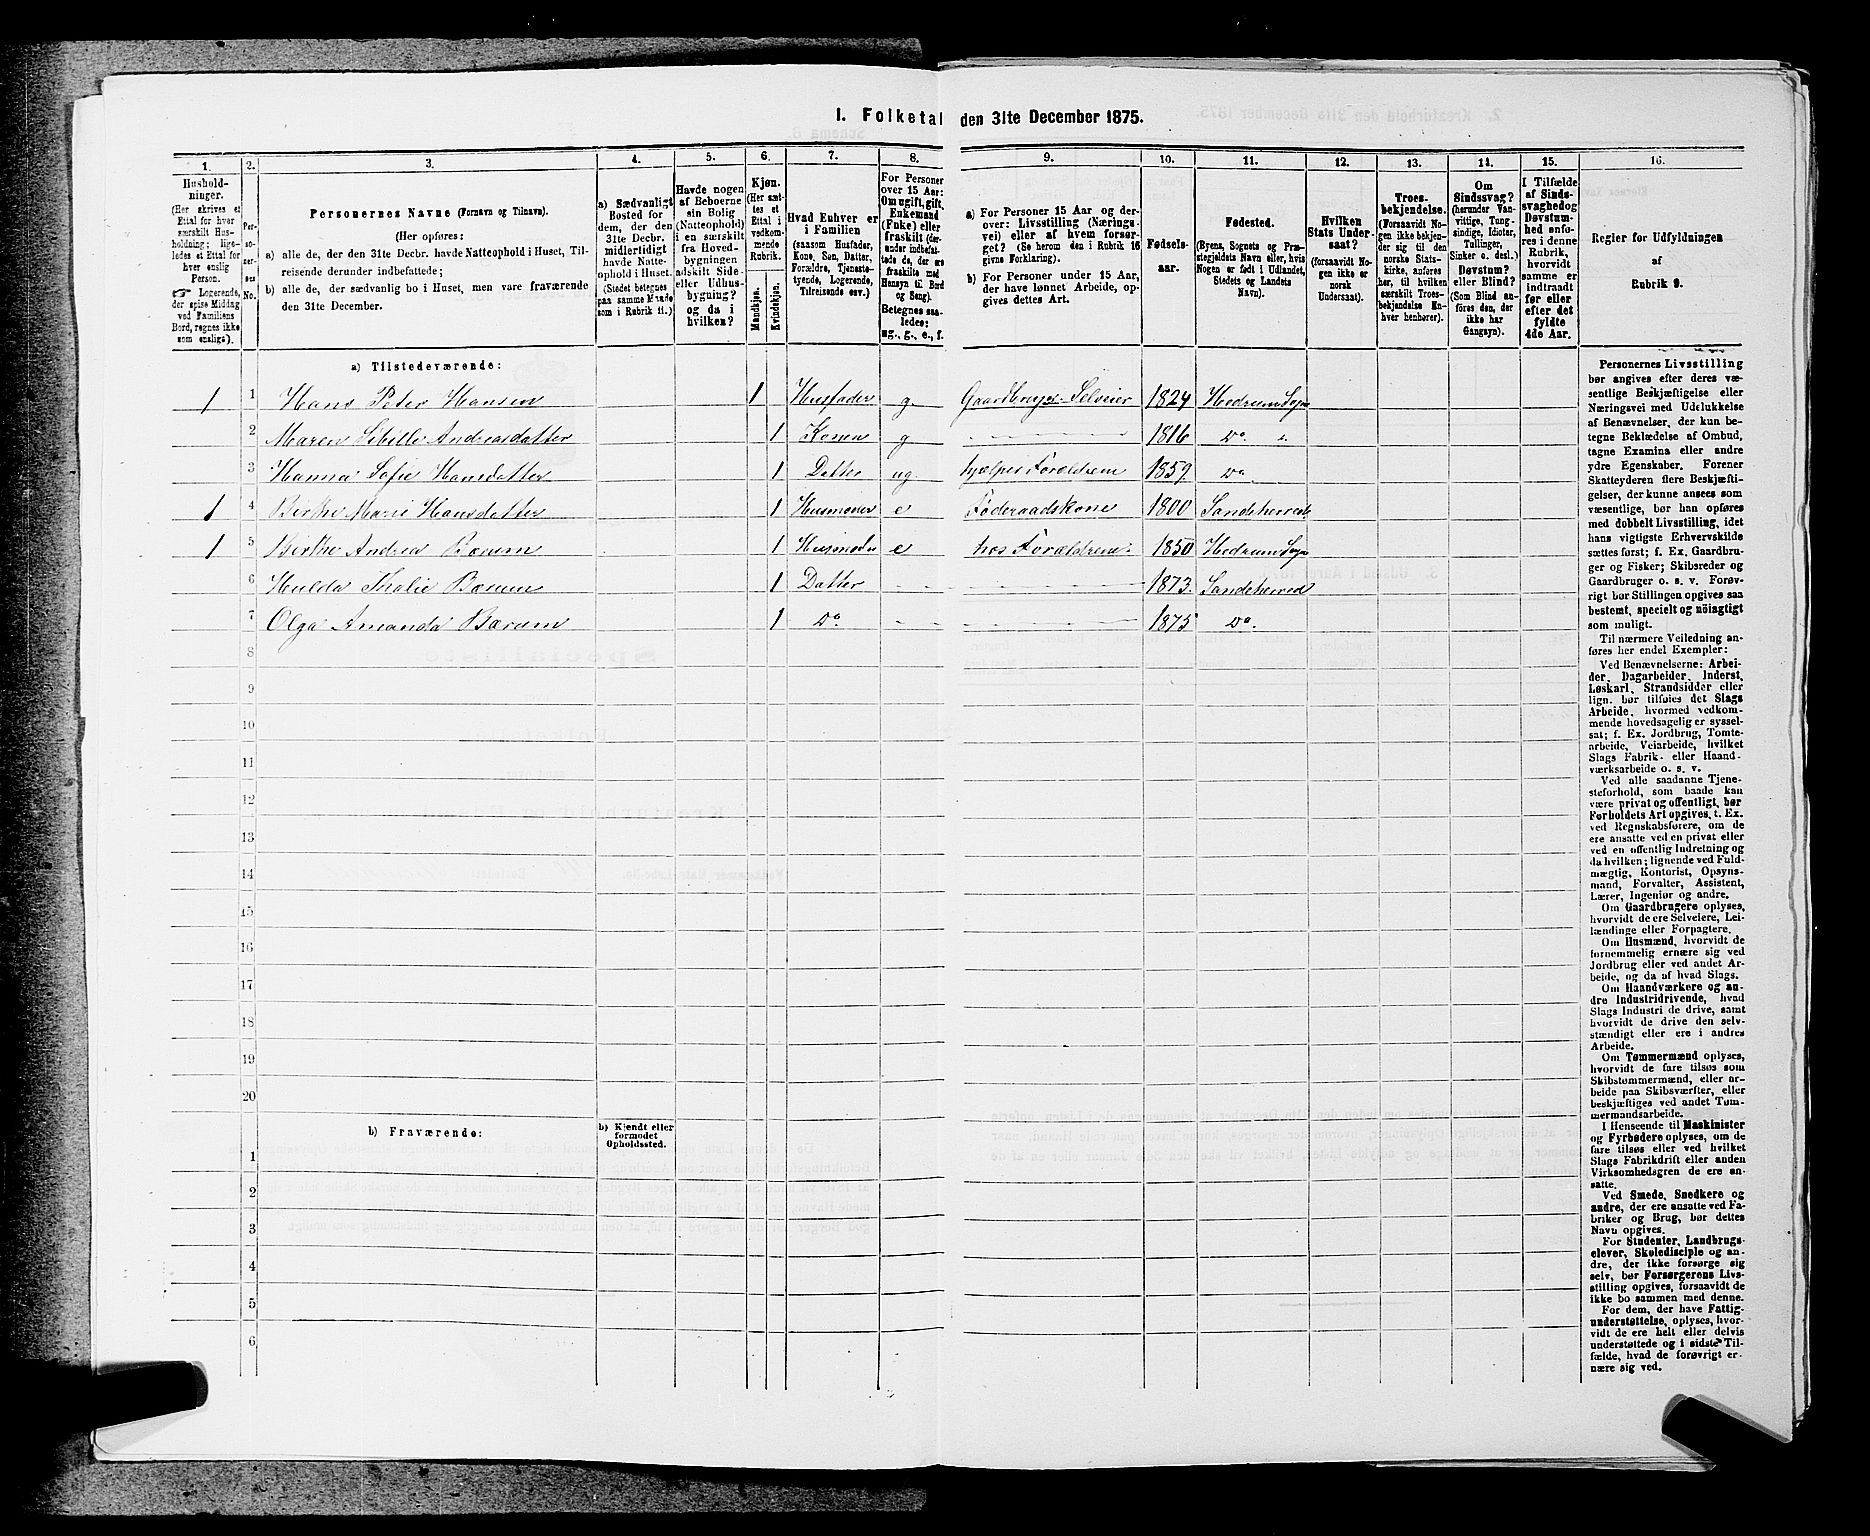 I. Folketal den 31te December 1875.
1. 2. 3. 4. 5. 6. 7. 8. 9. 10. 11. 12. 13. 14. 15. 16.
Husholdninger.
(Her skrives et
Ettal for hver
særskilt Husholdning;
ligeledes et Ettal for
hver enslig
Person.
☞ Logerende,
der spise Middag
ved Familiens
Bord, regnes ikke
som enslige).
Personernes No.
Personernes Navne (Fornavn og Tilnavn).
(Her opføres:
a) alle de, der den 31te Decbr. havde Natteophold i Huset, Tilreisende
derunder indbefattede;
b) alle de, der sædvanlig bo i Huset, men vare fraværende
den 31te December.
a) Sædvanligt
Bosted for
dem, der den
31te Decbr.
midlertidigt
havde Natteophold
i Huset.
(Stedet betegnes
paa samme Maade
som i Rubrik 11.)
Havde nogen
af Beboerne
sin Bolig
(Natteophold)
i en særskilt
fra Hovedbygningen
adskilt Side-
eller Udhusbygning?
og da i
hvilken?
Kjøn.
(Her sættes
et
Ettal i
vedkommende
Rubrik.
Mandkjøn.
Kvindekjøn.
Hvad Enhver er
i Familien
(saasom Husfader,
Kone, Søn, Datter,
Forældre, Tjenestetyende,
Logerende,
Tilreisende osv.)
For Personer
over 15 Aar:
Om ugift, gift,
Enkemand
(Enke) eller
fraskilt (derunder
indbefattede
de, der ere
fraskilte med
Hensyn til Bord
og Seng).
Betegnes saaledes:
ug., g., e., f.
a) For Personer 15 Aar og derover:
Livsstilling (Næringsvei)
eller af hvem forsørget?
(Se herom den i Rubrik 16
givne Forklaring).
b) For Personer under 15 Aar,
der have lønnet Arbeide, opgives
dettes Art.
Fødselsaar.
Fødested.
(Byens, Sognets og Præstegjeldets
Navn eller, hvis
Nogen er født i Udlandet,
Stedets og Landets
Navn).
Hvilken
Stats Undersaat?
(forsaavidt Nogen
ikke er
norsk
Undersaat).
Troesbekjendelse.
(Forsaavidt Nogen
ikke bekjender
sig til den
norske Statskirke,
anføres
her, til hvilken
særskilt Troesbekjendelse
Enhver
henhører).
Om
Sindssvag?
(herunder Vanvittige,
Tungsindige,
Idioter,
Tullinger,
Sinker o. desl.)
Døvstum?
eller Blind?
(Som Blind anføres
den, der
ikke har
Gangsyn).
I Tilfælde
af Sindssvaghed
og
Døvstumhed
anføres
i denne
Rubrik,
hvorvidt
samme er
indtraadt
før eller
efter det
fyldte
4de Aar.
Regler for Udfyldningen
af
Rubrik 9.
a) Tilstedeværende:
1 1 Hans Peter Hansen 1 Husfader g. Gaardbruger Selveier 1824 Hedrum Sogn
2 Maren Sibille Andreasdatter 1 Konen g 1816 Do
3 Hanna Sofie Hansdatter 1 Datter ug. hjælper Forældrene 1859. Do
1 4 Birthe Marie Hansdatter 1 Husmoder e Føderaadskone 1800 Sandeherred
1 5 Birthe Andrea Bærum 1 Husmoder e hos Forældrene. 1850 Hedrum Sogn
6 Hulda Thalie Bærum 1 Datter 1873. Sandeherred
7 Olga Amanda Bærum 1 Do. 1875 Do.
8
9
10
11
12
13
14
15
16
17
18
19
20
b) Fraværende:
b) Kjendt eller
formodet
Opholdssted.
1
2
3
4
5
6
Personernes Livsstilling
bør angives efter deres væsentlige
Beskjæftigelse eller
Næringsvei med Udelukkelse
af Benævnelser, der kun betegne
Beklædelse af Ombud,
tagne Examina eller andre
ydre Egenskaber. Forener
Skatteyderen flere Beskjæftigelser,
der kunne ansees som
væsentlige, bør han opføres
med dobbelt Livsstilling, idet
hans vigtigste Erhvervskilde
sættes først; f. Ex. Gaardbruger
og Fisker; Skibsreder og
Gaardbruger o. s. v. Forøvrigt
bør Stillingen opgives saa
bestemt, specielt og nøiagtigt
som muligt.
Til nærmere Veiledning anføres
her endel Exempler:
Ved Benævnelserne: Arbeider,
Dagarbeider, Inderst,
Løskarl, Strandsidder eller
lign. bør tilføies det Slags
Arbeide, hvormed vedkommende
hovedsagelig er sysselsat;
f. Ex. Jordbrug, Tomtearbeide,
Veiarbeide, hvilket
Slags Fabrik- eller Haandværksarbeide
o. s. v.
Ved alle saadanne Tjenesteforhold,
som baade kan
være privat og offentligt, bør
Forholdets Art opgives, t. Ex.
ved Regnskabsførere, om de
ere ansatte ved en privat eller
ved en offentlig Indretning og
da hvilken; lignende ved Fuldmægtig,
Kontorist, Opsynsmand,
Forvalter, Assistent,
Lærer, Ingeniør og andre.
Om Gaardbrugere oplyses,
hvorvidt de ere Selveiere, Leilændinge
eller Forpagtere.
Om Husmænd, hvorvidt de
fornemmelig ernære sig ved
Jordbrug eller ved andet Arbeide,
og da af hvad Slags.
Om Haandværkere og andre
Industridrivende, hvad
Slags Industri de drive, samt
hvorvidt de drive den selvstændigt
eller ere i andres
Arbeide.
Om Tømmermænd oplyses,
hvorvidt de fare tilsøs som
Skibstømmermænd, eller arbeide
paa Skibsværfter, eller
beskjæftiges ved andet Tømmermandsarbeide.
I Henseende til Maskinister
og Fyrbødere oplyses, om de
fare tilsøs eller ved hvilket
Slags Fabrikdrift eller anden
Virksomhedsgren de ere ansatte.
Ved Smede, Snedkere og
andre, der ere ansatte ved Fabriker
og Brug, bør dettes
Navn opgives.
For Studenter, Landbrugselever,
Skoledisciple og andre,
der ikke forsørge sig
selv, bør Forsørgerens Livsstilling
opgives, forsaavidt de
ikke bo sammen med denne.
For dem, der have Fattigunderstøttelse,
oplyses, hvorvidt
de ere helt eller delvis
understøttede og i sidste Tilfælde,
hvad de forøvrigt ernære
sig ved.